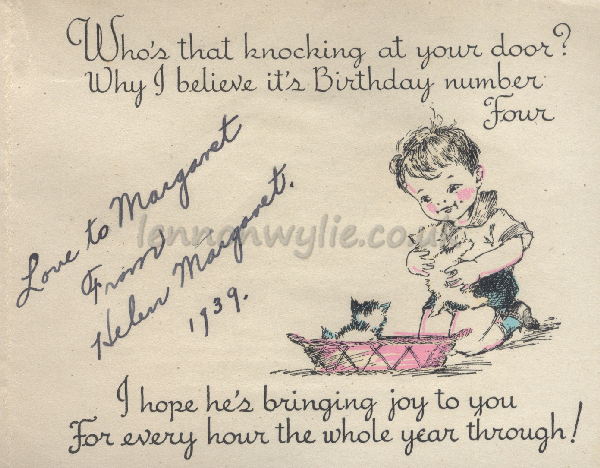 Who's that knocking at your door?
Why I believe it's Birthday number
Four
Love to Margaret
From
Helen Margaret.
1939.
lennonwylie.co.uk
I hope he's bringing joy to you
For every hour the whole year through!